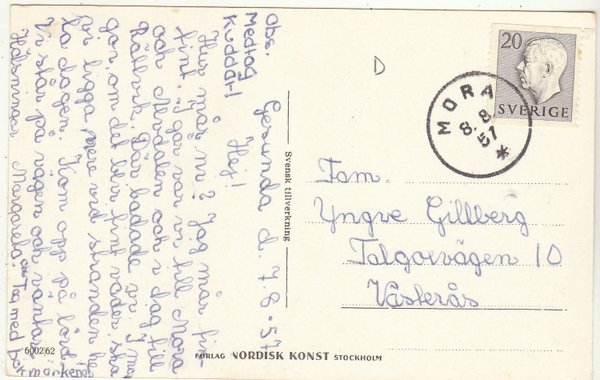 Obs.
Medtag
Kuddar!
Gesunda d. 7.8.-57
Hej!
Hur mår ni? Jag mår fin-
fint. i går var vi till Mora
och i dag till
Rättvik. Där badade vi. I mor
gon om det blir fint väder, ska
vi ligga nere vid stranden he
la dagen. Kom opp på lörd
Vi står på vägen och väntar
Hälsningar Margareta.
Tag med
märken
D
20
SVERIGE
MORA
8.8
57
Fam.
Yngve Gillberg
Talgoxvägen 10
Västerås
Svensk tillverkning
6002/62
FÖRLAG NORDISK KONST STOCKHOLM